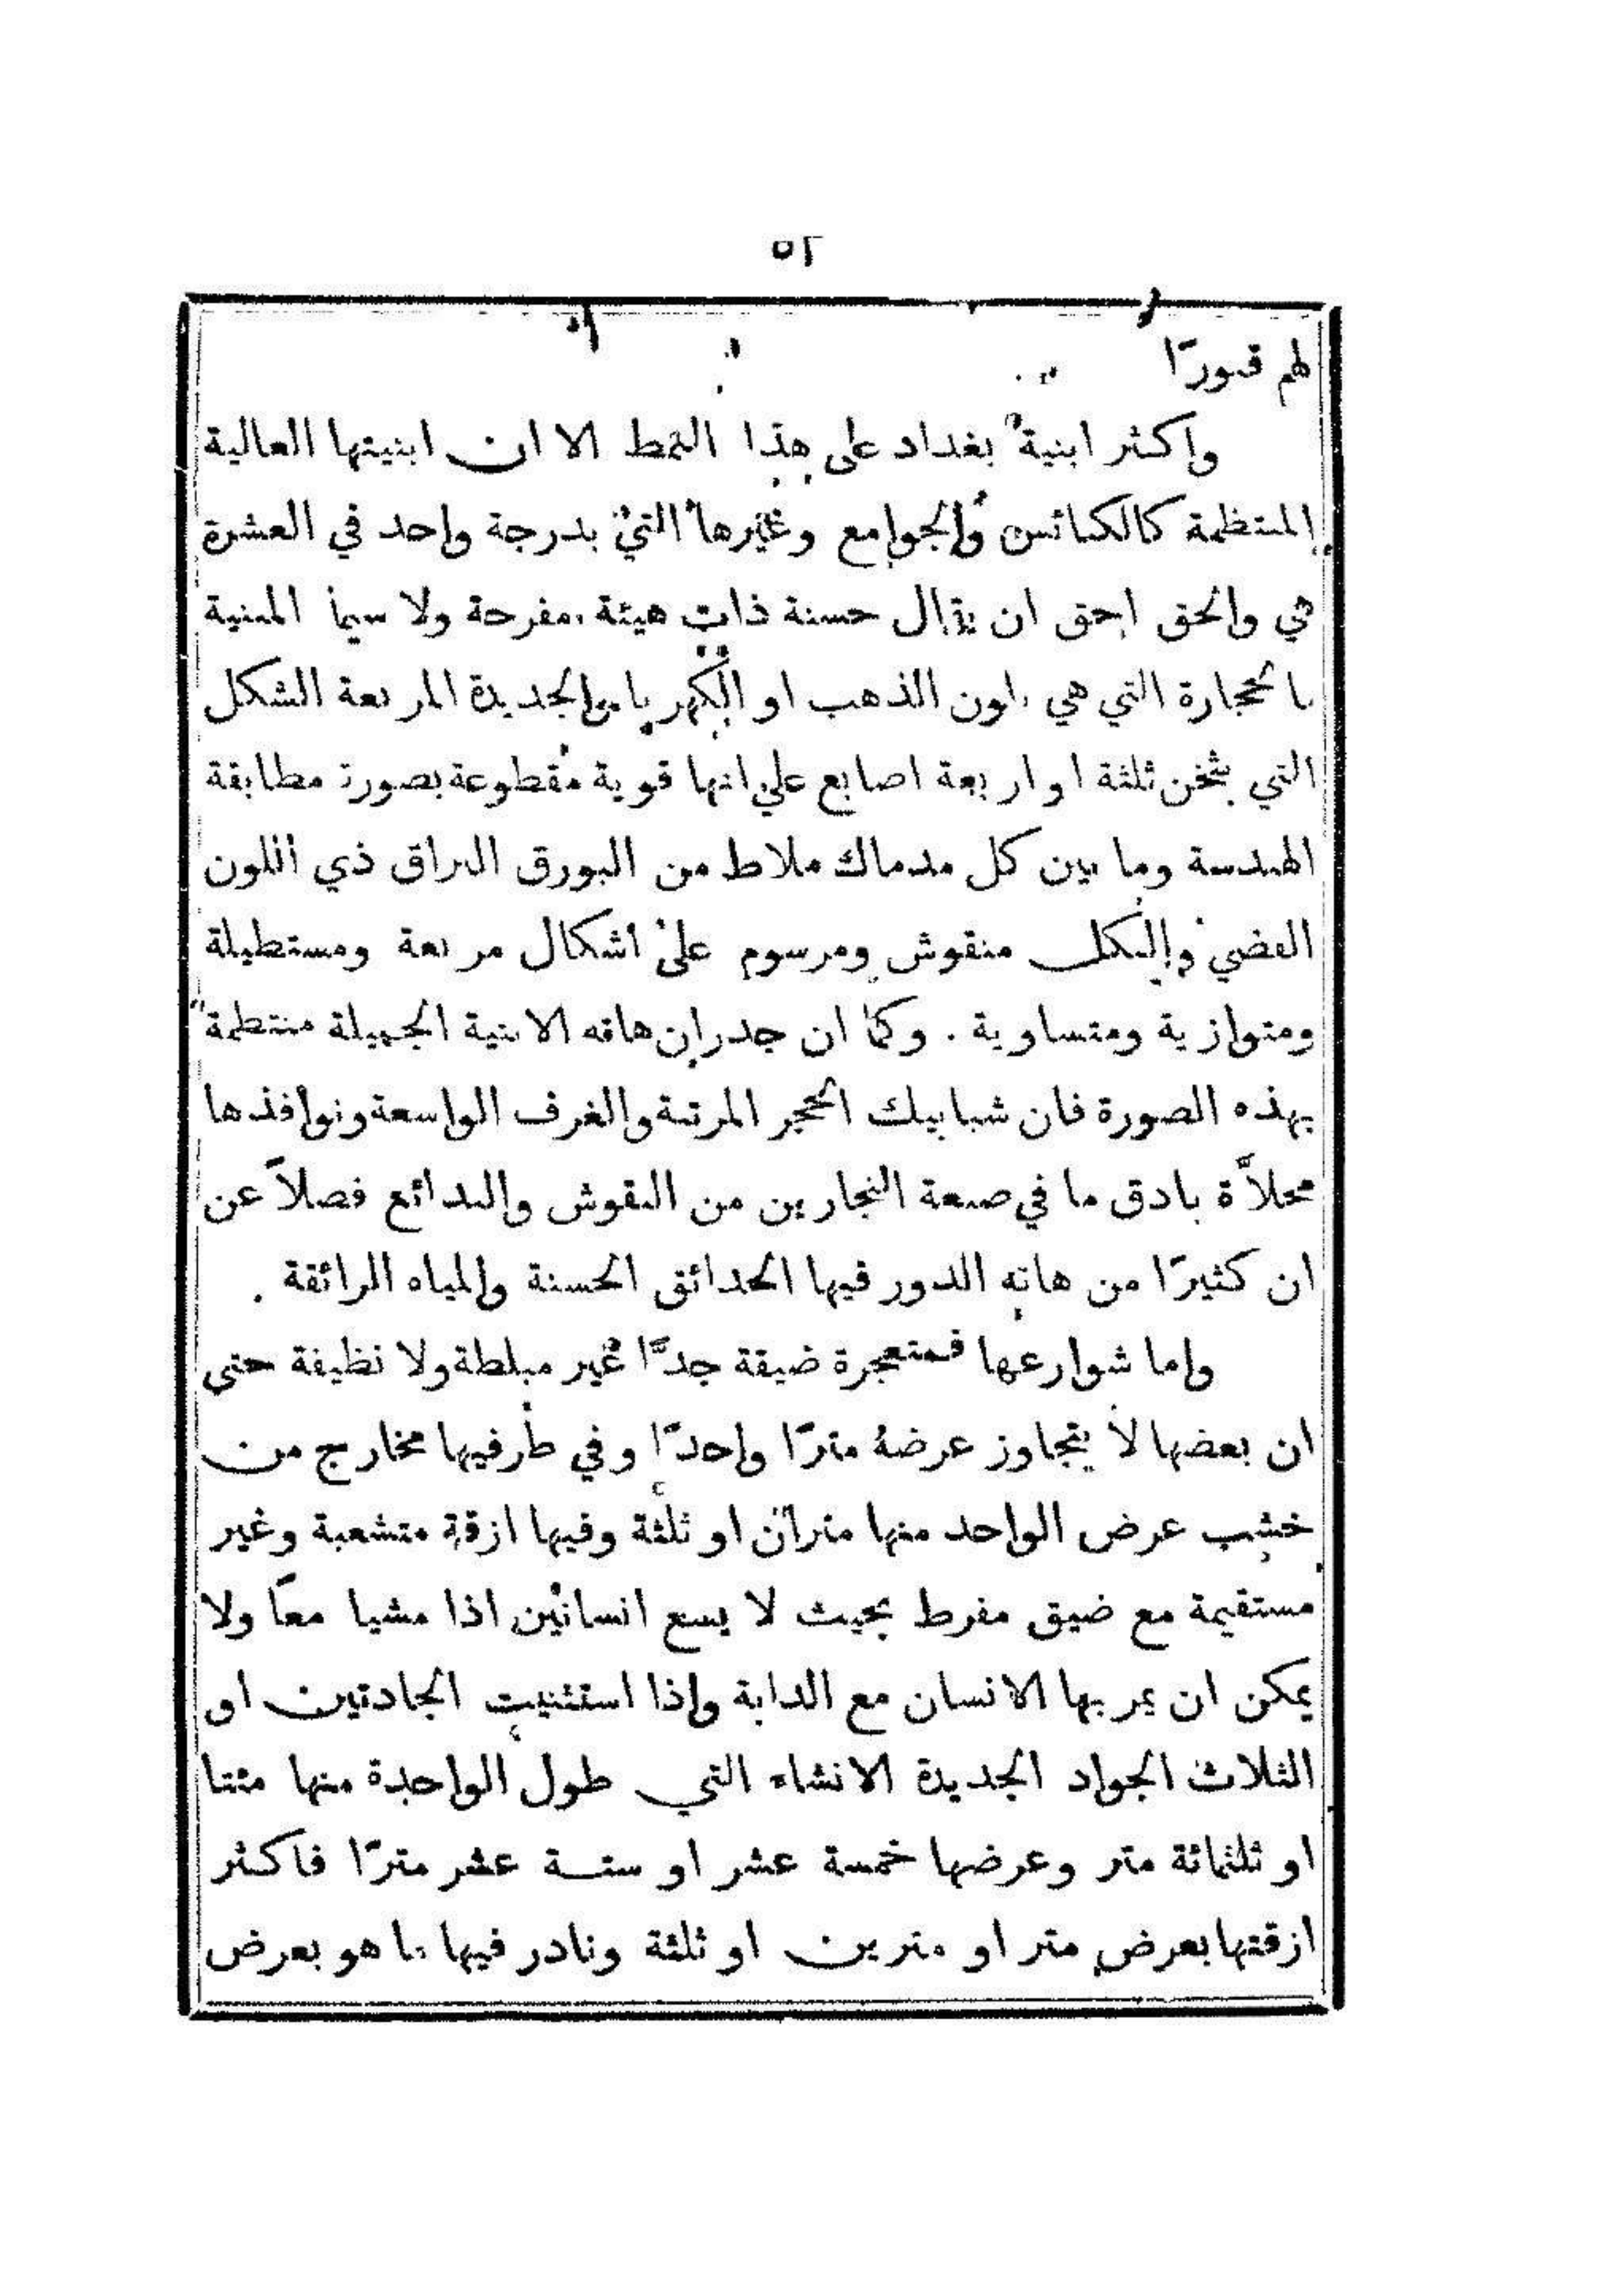 ٥٢
لهم قبورًا
واكثر ابنية بغداد على هذا النمط الا ان ابنيتها العالية
المنتظمة كالكنائس والجوامع وغيرها التي بدرجة واحد في العشرة
هي والحق احق ان يقال حسنة ذات هيئة مفرحة ولا سيما المبنية
بالحجارة التي هي بلون الذهب او الكهرباء والجديدة المربعة الشكل
التي بثخن ثلثة او اربعة اصابع على انها قوية مقطوعة بصورة مطابقة
الهندسة وما بين كل مدماك ملاط من البورق البراق ذي اللون
الفضي والكل منقوش ومرسوم على اشكال مربعة ومستطيلة
ومتوازية ومتساوية . وكما ان جدران هاته الابنية الجميلة منتظمة
بهذه الصورة فان شبابيك الحجر المرتبة والغرف الواسعة ونوافذها
محلاَّة بادق ما في صنعة النجارين من النقوش والبدائع فضلاً عن
ان كثيرًا من هاته الدور فيها الحدائق الحسنة والمياه الرائقة .
واما شوارعها فمتعجرة ضيقة جدًّا غير مبلطة ولا نظيفة حتى
ان بعضها لا يتجاوز عرضهُ مترًا واحدًا وفي طرفيها مخارج من
خشب عرض الواحد منها متران او ثلثة وفيها ازقة متشعبة وغير
مستقيمة مع ضيق مفرط بحيث لا يسع انسانين اذا مشيا معًا ولا
يمكن ان يمر بها الانسان مع الدابة واذا استثنيت الجادتين او
الثلاث الجواد الجديدة الانشاء التي طول الواحدة منها مئتا
او ثلثمائة متر وعرضها خمسة عشر او ستــة عشر مترًا فاكثر
ازقتها بعرض متر او مترين او ثلثة ونادر فيها ما هو بعرض